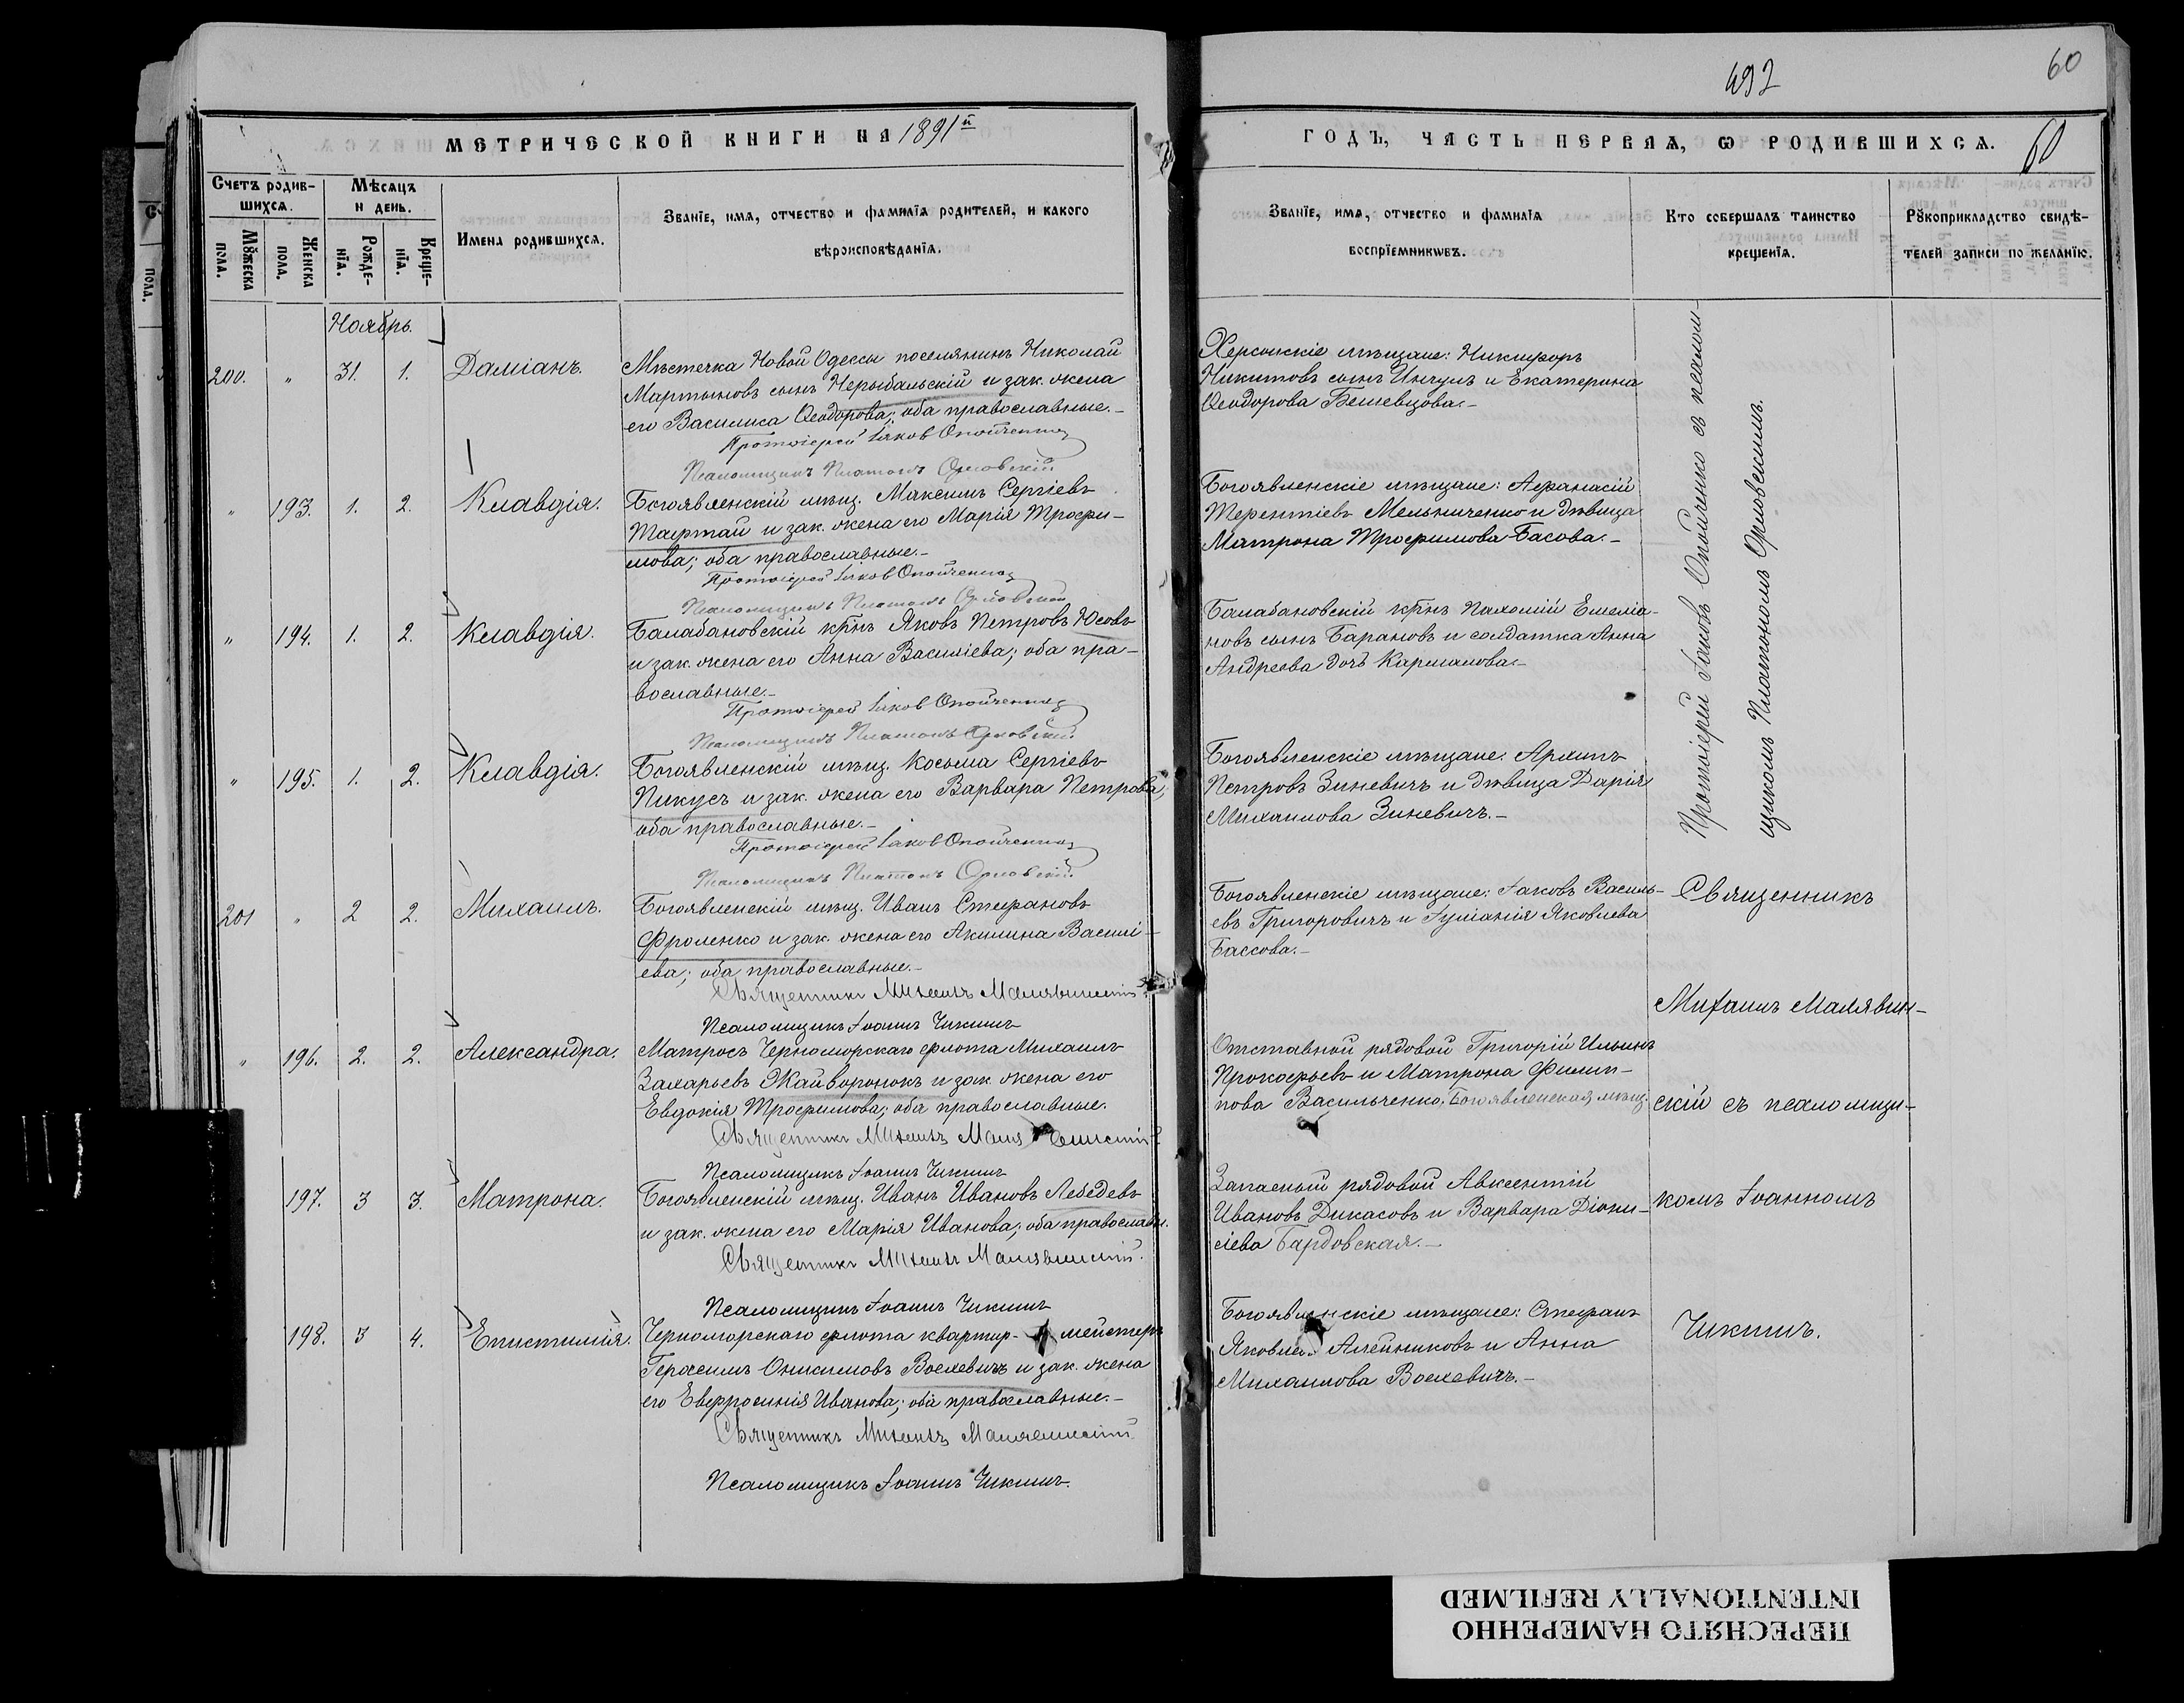 492
60
МЕТРИЧЕСКОЙ КНИГИ НА 1891й
ГОДЪ, ЧАСТЬ ПЕРВАЯ, Ѡ РОДИВШИХСѦ.
60
Счетъ родив-
шихсѧ.
Мꙋжеска
пола.
Женска
пола.
Мѣсяцъ
и день.
Рожде-
нїѧ.
Креще-
нїѧ.
Имена родившихсѧ.
Званїе, имѧ, отчество и фамилїѧ родителей, и какого
вѣроисповѣданїѧ.
Званїе, имѧ, отчество и фамилїѧ
воспрїемникѡвъ.
Кто совершалъ таинство
крещенїѧ.
Рꙋкоприкладство свидѣ-
телей записи по желанїю.
Ноябрь.
200. " 31. 1. Даміанъ.
Мѣстечка Новой Одессы поселянинъ Николай
Мартыновъ сынъ Чердыбальскій и зак. жена
его Василиса Ѳеодорова; оба православные.-
Протоіерей Іаковъ Опойченко
Псаломщикъ Платонъ Орловскій
Херсонскіе мѣщане: Никифоръ
Никитовъ сынъ Ингулъ и Екатерина
Ѳеодорова Бешевцова.-
" 193. 1. 2. Клавдія.
Богоявленскій мѣщ. Максимъ Сергіевъ
Тафтай и зак. жена его Марія Трофи-
мова; оба православные.-
Протоіерей Іаковъ Опойченко
Псаломщикъ Платонъ Орловскій
Богоявленскіе мѣщане: Аѳанасій
Терентіевъ Мельниченко и дѣвица
Матрона Трофимова Басова.-
" 194. 1. 2. Клавдія.
Балабановскій кр͠нъ Яковъ Петровъ Юсовъ
и зак. жена его Анна Василіева; оба пра-
вославные.-
Протоіерей Іаковъ Опойченко
Псаломщикъ Платонъ Орловскій
Балабановскій кр͠нъ Пахомій Емеліа-
новъ сынъ Барановъ и солдатка Анна
Андреева дочь Карманова.-
" 195. 1. 2. Клавдія.
Богоявленскій мѣщ. Косьма Сергіевъ
Пикусъ и зак. жена его Варвара Петрова;
оба православные.-
Протоіерей Іаковъ Опойченко
Псаломщикъ Платонъ Орловскій.
Богоявленскіе мѣщане: Архипъ
Петровъ Зиневичъ и дѣвица Дарія
Михаилова Зиневичъ.-
Протоіерей Іаковъ Опойченко съ псалом-
щикомъ Платономъ Орловскимъ.
201 " 2 2. Михаилъ.
Богоявленскій мѣщ. Иванъ Стефановъ
Фроленко и зак. жена его Акилина Василі-
ева; оба православные.-
Священникъ Михаилъ Малявинскій
Псаломщикъ Іоаннъ Чикшинъ
Богоявленскіе мѣщане: Іаковъ Василь-
евъ Григоровичъ и Іуліанія Яковлева
Бассова.-
" 196. 2. 2. Александра.
Матросъ Черноморскаго флота Михаилъ
Захарьевъ Жайворонокъ и зак. жена его
Евдокія Трофимова; оба православные.
Священникъ Михаилъ Малявинскій
Псаломщикъ Іоаннъ Чикшинъ
Отставной рядовой Григорій Ильинъ
Прокофьевъ и Матрона Филип-
пова Васильченко, Богоявленская мѣщ.
197. 3 3. Матрона.
Богоявленскій мѣщ. Иванъ Ивановъ Лебедевъ
и зак. жена его Марія Иванова; оба православн.
Священникъ Михаилъ Малявинскій.
Псаломщикъ Іоаннъ Чикшинъ
Запасный рядовой Авксентій
Ивановъ Дикасовъ и Варвара Діони-
сіева Бардовская.-
198. 3 4. Епистимія.
Черноморскаго флота квартир-мейстеръ
Герасимъ Онисимовъ Воехевичъ и зак. жена
его Евфросинія Иванова; оба православные.-
Священникъ Михаилъ Малявинскій
Псаломщикъ Іоаннъ Чикшинъ.
Богоявленскіе мѣщане: Стефанъ
Яковлевъ Алейниковъ и Анна
Михаилова Воехевичъ.-
Священникъ
Михаилъ Малявин-
скій съ псаломщи-
комъ Іоанномъ
Чикшинъ.
ПЕРЕСНЯТО НАМЕРЕННО
INTENTIONALLY REFILMED